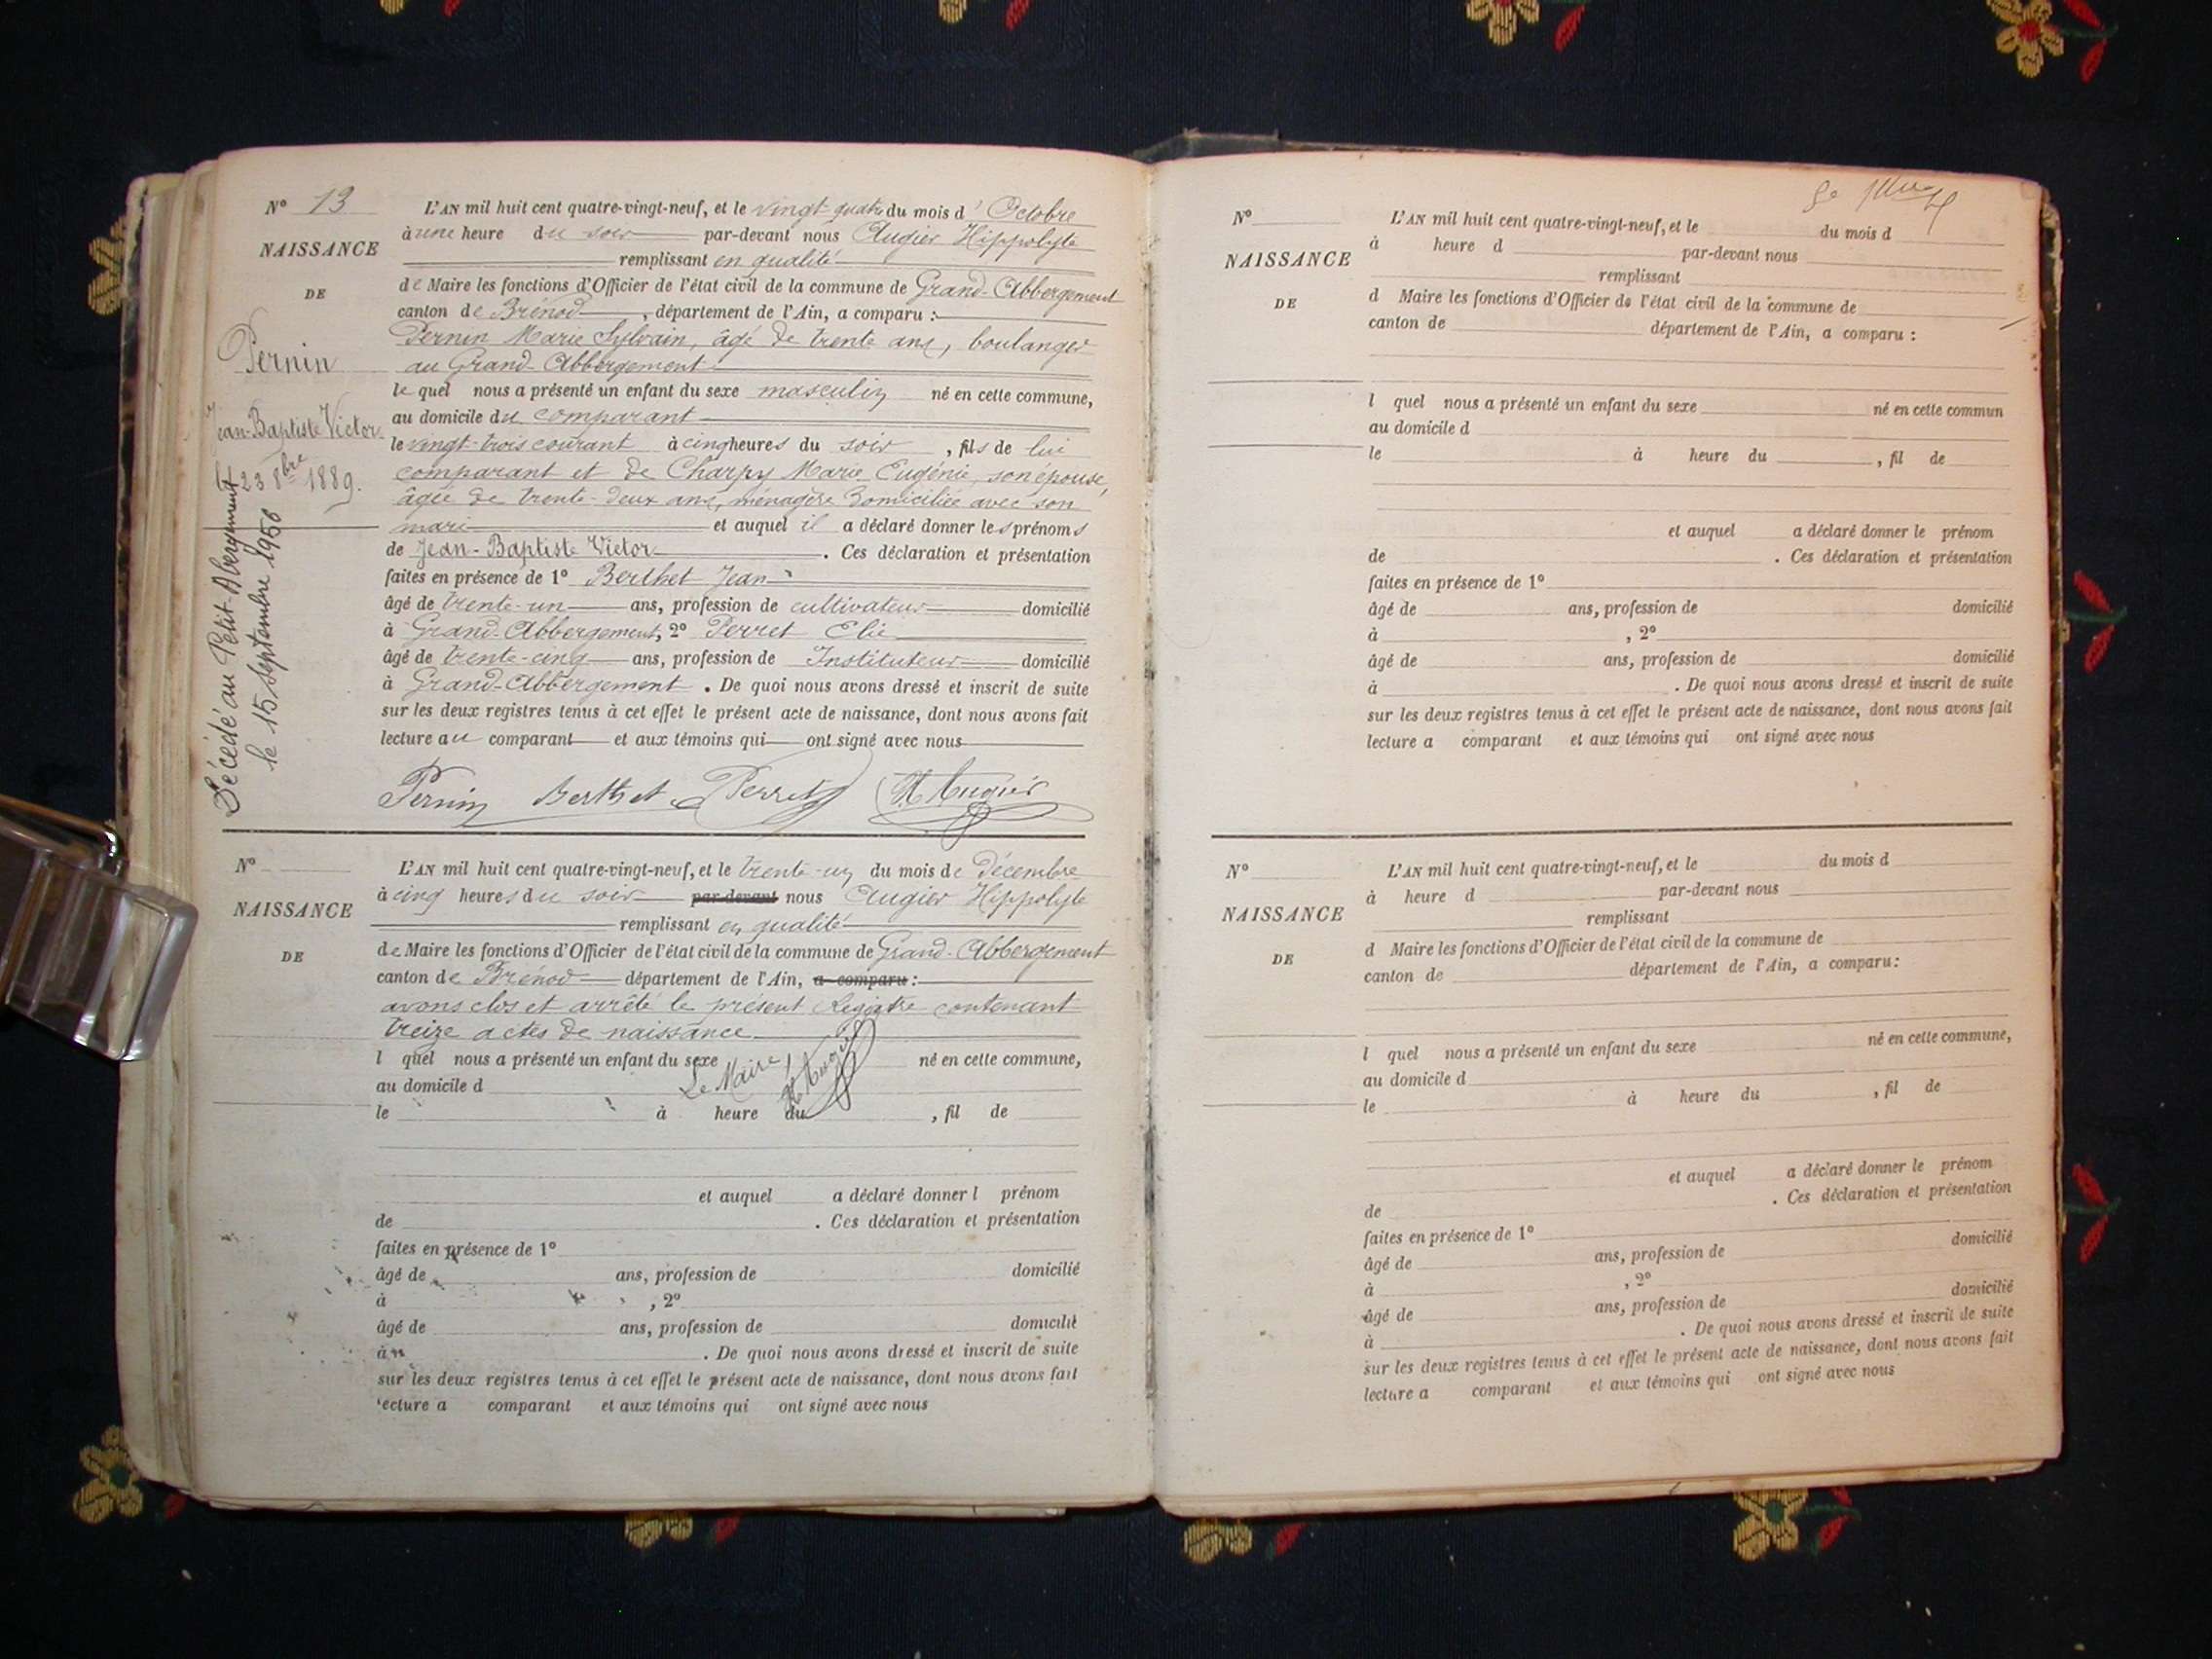 N° 13
NAISSANCE
DE
Pernin
Jean-Baptiste Victor
23 8bre 1889.
Décédé au Petit-Abergement
le 15 Septembre 1950
L'AN mil huit cent quatre-vingt-neuf, et le vingt quatre du mois d'Octobre
à une heure du soir par-devant nous Augier Hippolyte
remplissant en qualité
de Maire les fonctions d'Officier de l'état civil de la commune de Grand-Abbergement
canton de Brénod, département de l'Ain, a comparu :
Pernin Marie Sylvain, âgé de trente ans, boulanger
au Grand-Abbergement
le quel nous a présenté un enfant du sexe masculin né en cette commune,
au domicile du comparant
le vingt-trois courant à cinq heures du soir, fils de lui
comparant et de Charpy Marie Eugénie, son épouse,
âgée de trente-deux ans, ménagère domiciliée avec son
mari et auquel il a déclaré donner les prénoms
de Jean-Baptiste Victor. Ces déclaration et présentation
faites en présence de 1° Berthet Jean
âgé de trente-un ans, profession de cultivateur domicilié
à Grand-Abbergement, 2° Perret Elie
âgé de trente-cinq ans, profession de Instituteur domicilié
à Grand-Abbergement. De quoi nous avons dressé et inscrit de suite
sur les deux registres tenus à cet effet le présent acte de naissance, dont nous avons fait
lecture au comparant et aux témoins qui ont signé avec nous
Pernin Berthet Perret H Augier
N°
NAISSANCE
DE
L'AN mil huit cent quatre-vingt-neuf, et le trente-un du mois de Décembre
à cinq heures du soir par-devant nous Augier Hippolyte
remplissant en qualité
de Maire les fonctions d'Officier de l'état civil de la commune de Grand-Abbergement
canton de Brénod département de l'Ain, a comparu :
avons clos et arrêté le présent Registre contenant
treize actes de naissance
l quel nous a présenté un enfant du sexe né en cette commune,
Le Maire,
H Augier
au domicile d
le à heure du , fil de
et auquel a déclaré donner l prénom
de . Ces déclaration et présentation
faites en présence de 1°
âgé de ans, profession de domicilié
à , 2°
âgé de ans, profession de domicilié
à . De quoi nous avons dressé et inscrit de suite
sur les deux registres tenus à cet effet le présent acte de naissance, dont nous avons fait
lecture a comparant et aux témoins qui ont signé avec nous
N°
NAISSANCE
DE
L'AN mil huit cent quatre-vingt-neuf, et le du mois d
à heure d par-devant nous
remplissant
d Maire les fonctions d'Officier de l'état civil de la commune de
canton de département de l'Ain, a comparu :
l quel nous a présenté un enfant du sexe né en cette commun
au domicile d
le à heure du , fil de
et auquel a déclaré donner le prénom
de . Ces déclaration et présentation
faites en présence de 1°
âgé de ans, profession de domicilié
à , 2°
âgé de ans, profession de domicilié
à . De quoi nous avons dressé et inscrit de suite
sur les deux registres tenus à cet effet le présent acte de naissance, dont nous avons fait
lecture a comparant et aux témoins qui ont signé avec nous
N°
NAISSANCE
DE
L'AN mil huit cent quatre-vingt-neuf, et le du mois d
à heure d par-devant nous
remplissant
d Maire les fonctions d'Officier de l'état civil de la commune de
canton de département de l'Ain, a comparu :
l quel nous a présenté un enfant du sexe né en cette commune,
au domicile d
le à heure du , fil de
et auquel a déclaré donner le prénom
de . Ces déclaration et présentation
faites en présence de 1°
âgé de ans, profession de domicilié
à , 2°
âgé de ans, profession de domicilié
à . De quoi nous avons dressé et inscrit de suite
sur les deux registres tenus à cet effet le présent acte de naissance, dont nous avons fait
lecture a comparant et aux témoins qui ont signé avec nous